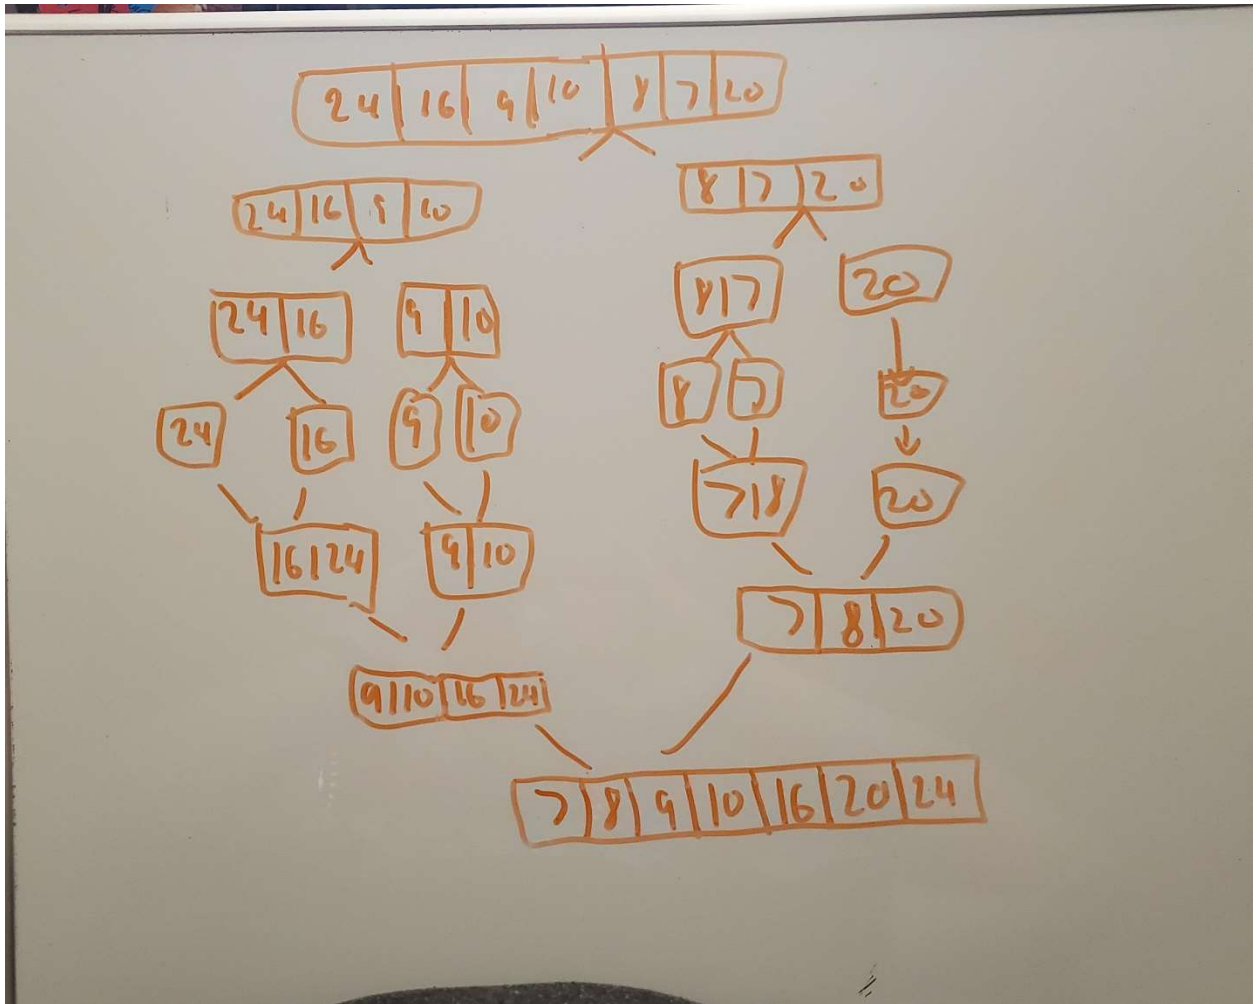 24 16 9 10 8 7 20
24 16 9 10
8 7 20
24 16
9 10
8 7
20
24
16
9
10
8
7
20
16 24
9 10
7 8
20
9 10 16 24
7 8 20
7 8 9 10 16 20 24